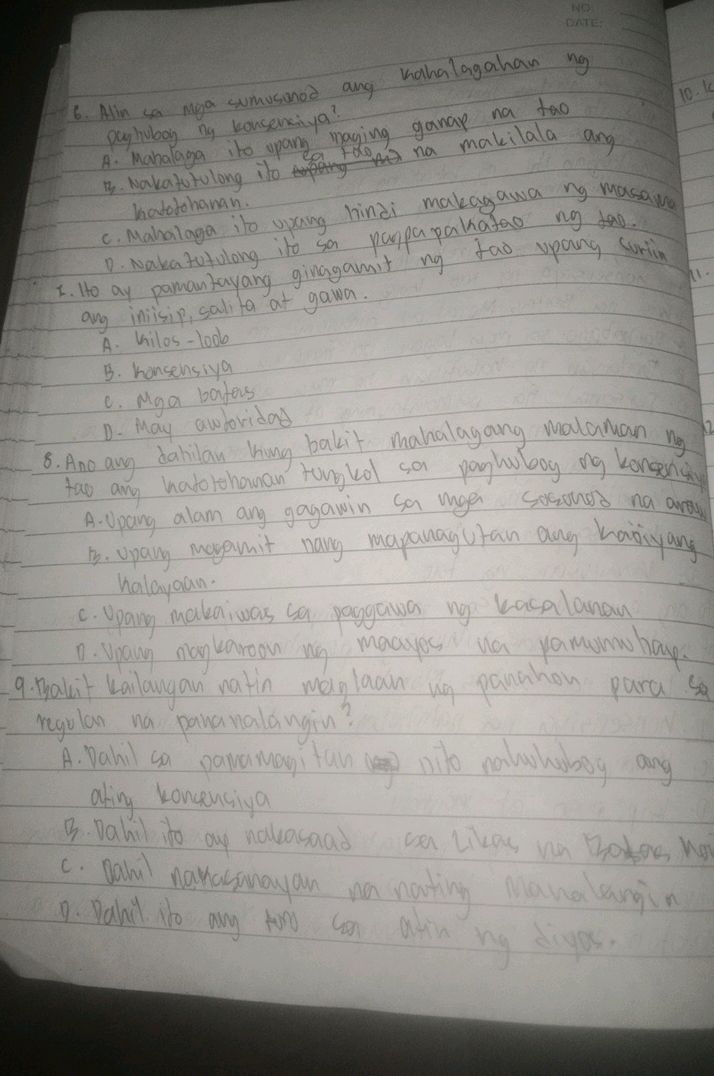 NO:
DATE:
6. Alin sa mga sumusunod ang kahalagahan ng
paghubog ng konsensiya?
A. Mahalaga ito upang maging ganap na tao
B. Nakatutulong ito sa tao na makilala ang
katotohanan.
C. Mahalaga ito upang hindi makagawa ng masama
D. Nakatutulong ito sa pagpapakatao ng tao.
7. Ito ay pamantayang ginagamit ng tao upang suriin
ang iniisip, salita at gawa.
A. Kilos-loob
B. Konsensiya
C. Mga batas
D. May awtoridad
8. Ano ang dahilan kung bakit mahalagang malaman ng
tao ang katotohanan tungkol sa paghubog ng konsensiya
A. Upang alam ang gagawin sa mga susunod na araw
B. Upang magamit nang mapanagutan ang kaniyang
kalayaan.
C. Upang makaiwas sa paggawa ng kasalanan
D. Upang magkaroon ng maayos na pamumuhay.
9. Bakit kailangan natin maglaan ng panahon para sa
regular na pananalangin?
A. Dahil sa pamamagitan nito nahuhubog ang
ating konsensiya
B. Dahil ito ay nakasaad sa Likas na Batas
C. Dahil nakasanayan na nating manalangin
D. Dahil ito ang turo sa atin ng diyos.
10.
11.